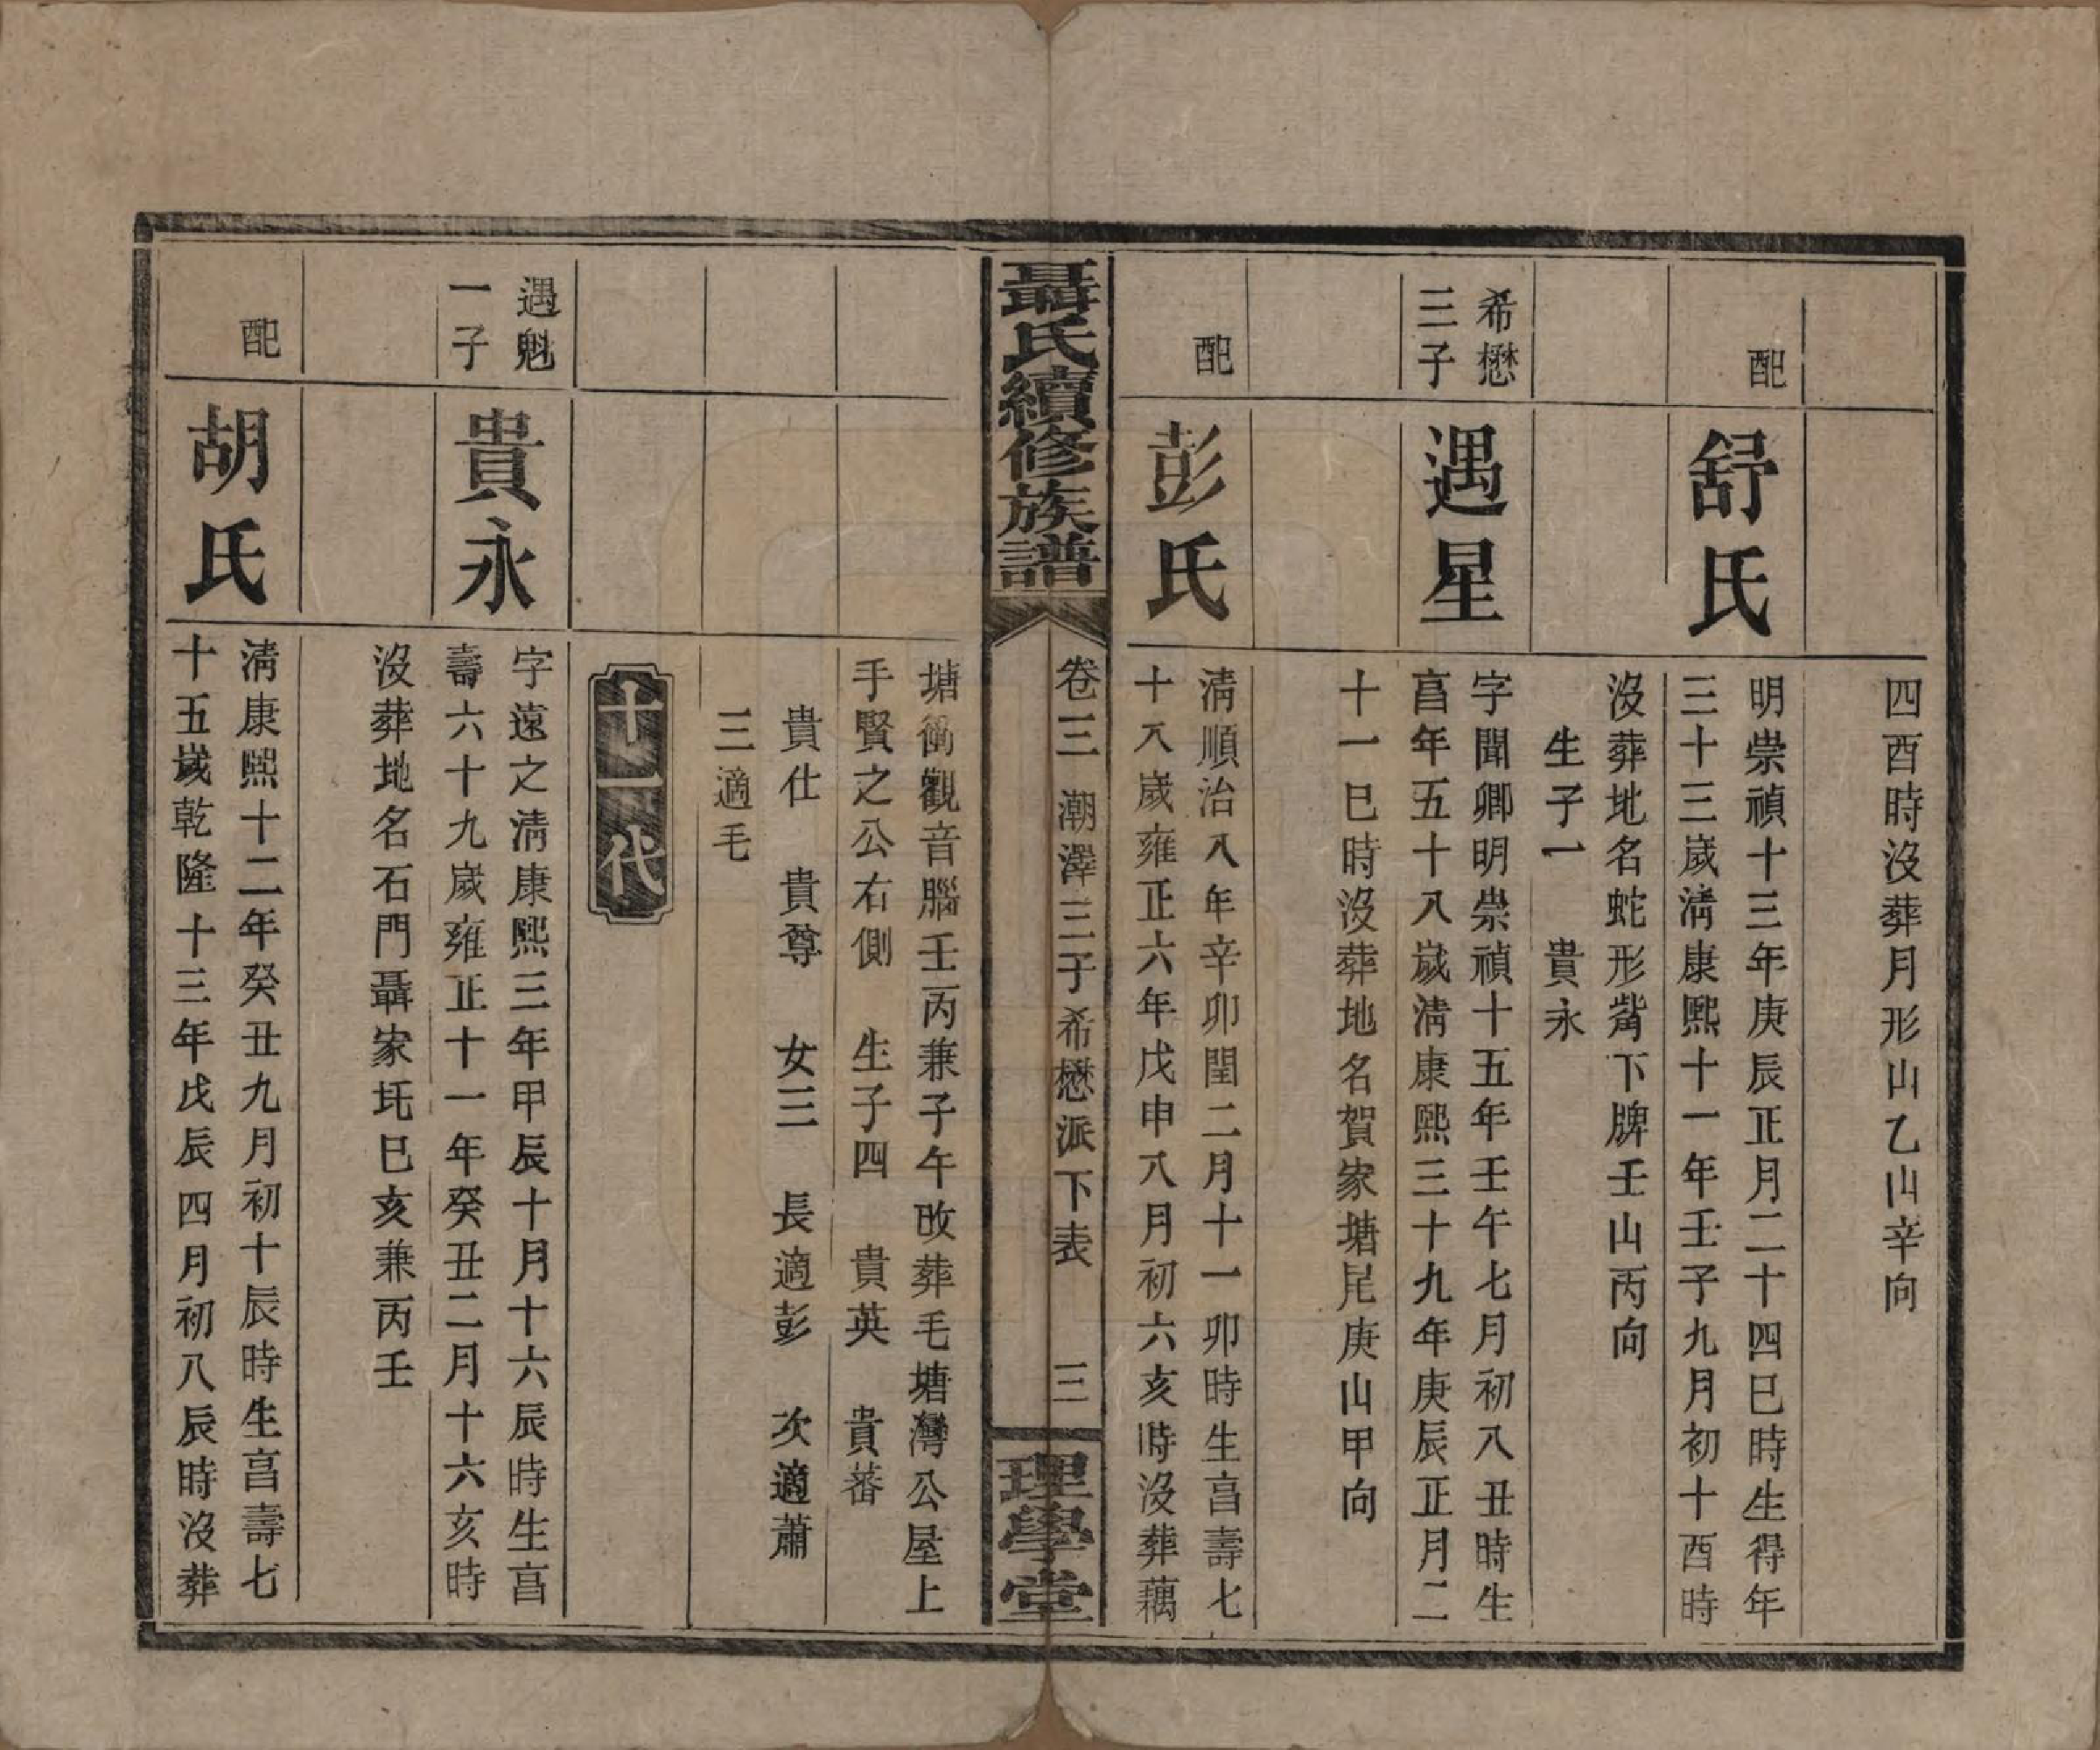 四酉時沒葬月形山乙山辛向
配
舒氏
明崇禎十三年庚辰正月二十四巳時生得年
三十三歲清康熙十一年壬子九月初十酉時
沒葬地名蛇形觜下牌壬山丙向
生子一　貴永
希懋
三子
遇星
字聞卿明崇禎十五年壬午七月初八丑時生
亯年五十八歲清康熙三十九年庚辰正月二
十一巳時沒葬地名賀家塘尾庚山甲向
配
彭氏
清順治八年辛卯閏二月十一卯時生亯壽七
十八歲雍正六年戊申八月初六亥時沒葬藕
聶氏續修族譜
卷三　潮澤三子希懋派下表　三
理學堂
塘衝觀音腦壬丙兼子午改葬毛塘灣公屋上
手賢之公右側　生子四　貴英　貴蕃
貴仕　貴尊　女三　長適彭　次適蕭
三適毛
十一代
遇魁
一子
貴永
字遠之清康熙三年甲辰十月十六辰時生亯
壽六十九歲雍正十一年癸丑二月十六亥時
沒葬地名石門聶家圫巳亥兼丙壬
配
胡氏
清康熙十二年癸丑九月初十辰時生亯壽七
十五歲乾隆十三年戊辰四月初八辰時沒葬